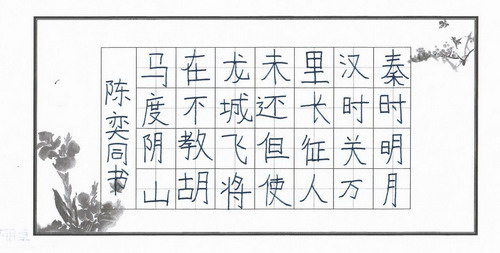 秦时明月
汉时关万
里长征人
未还但使
龙城飞将
在不教胡
马度阴山
陈奕同书